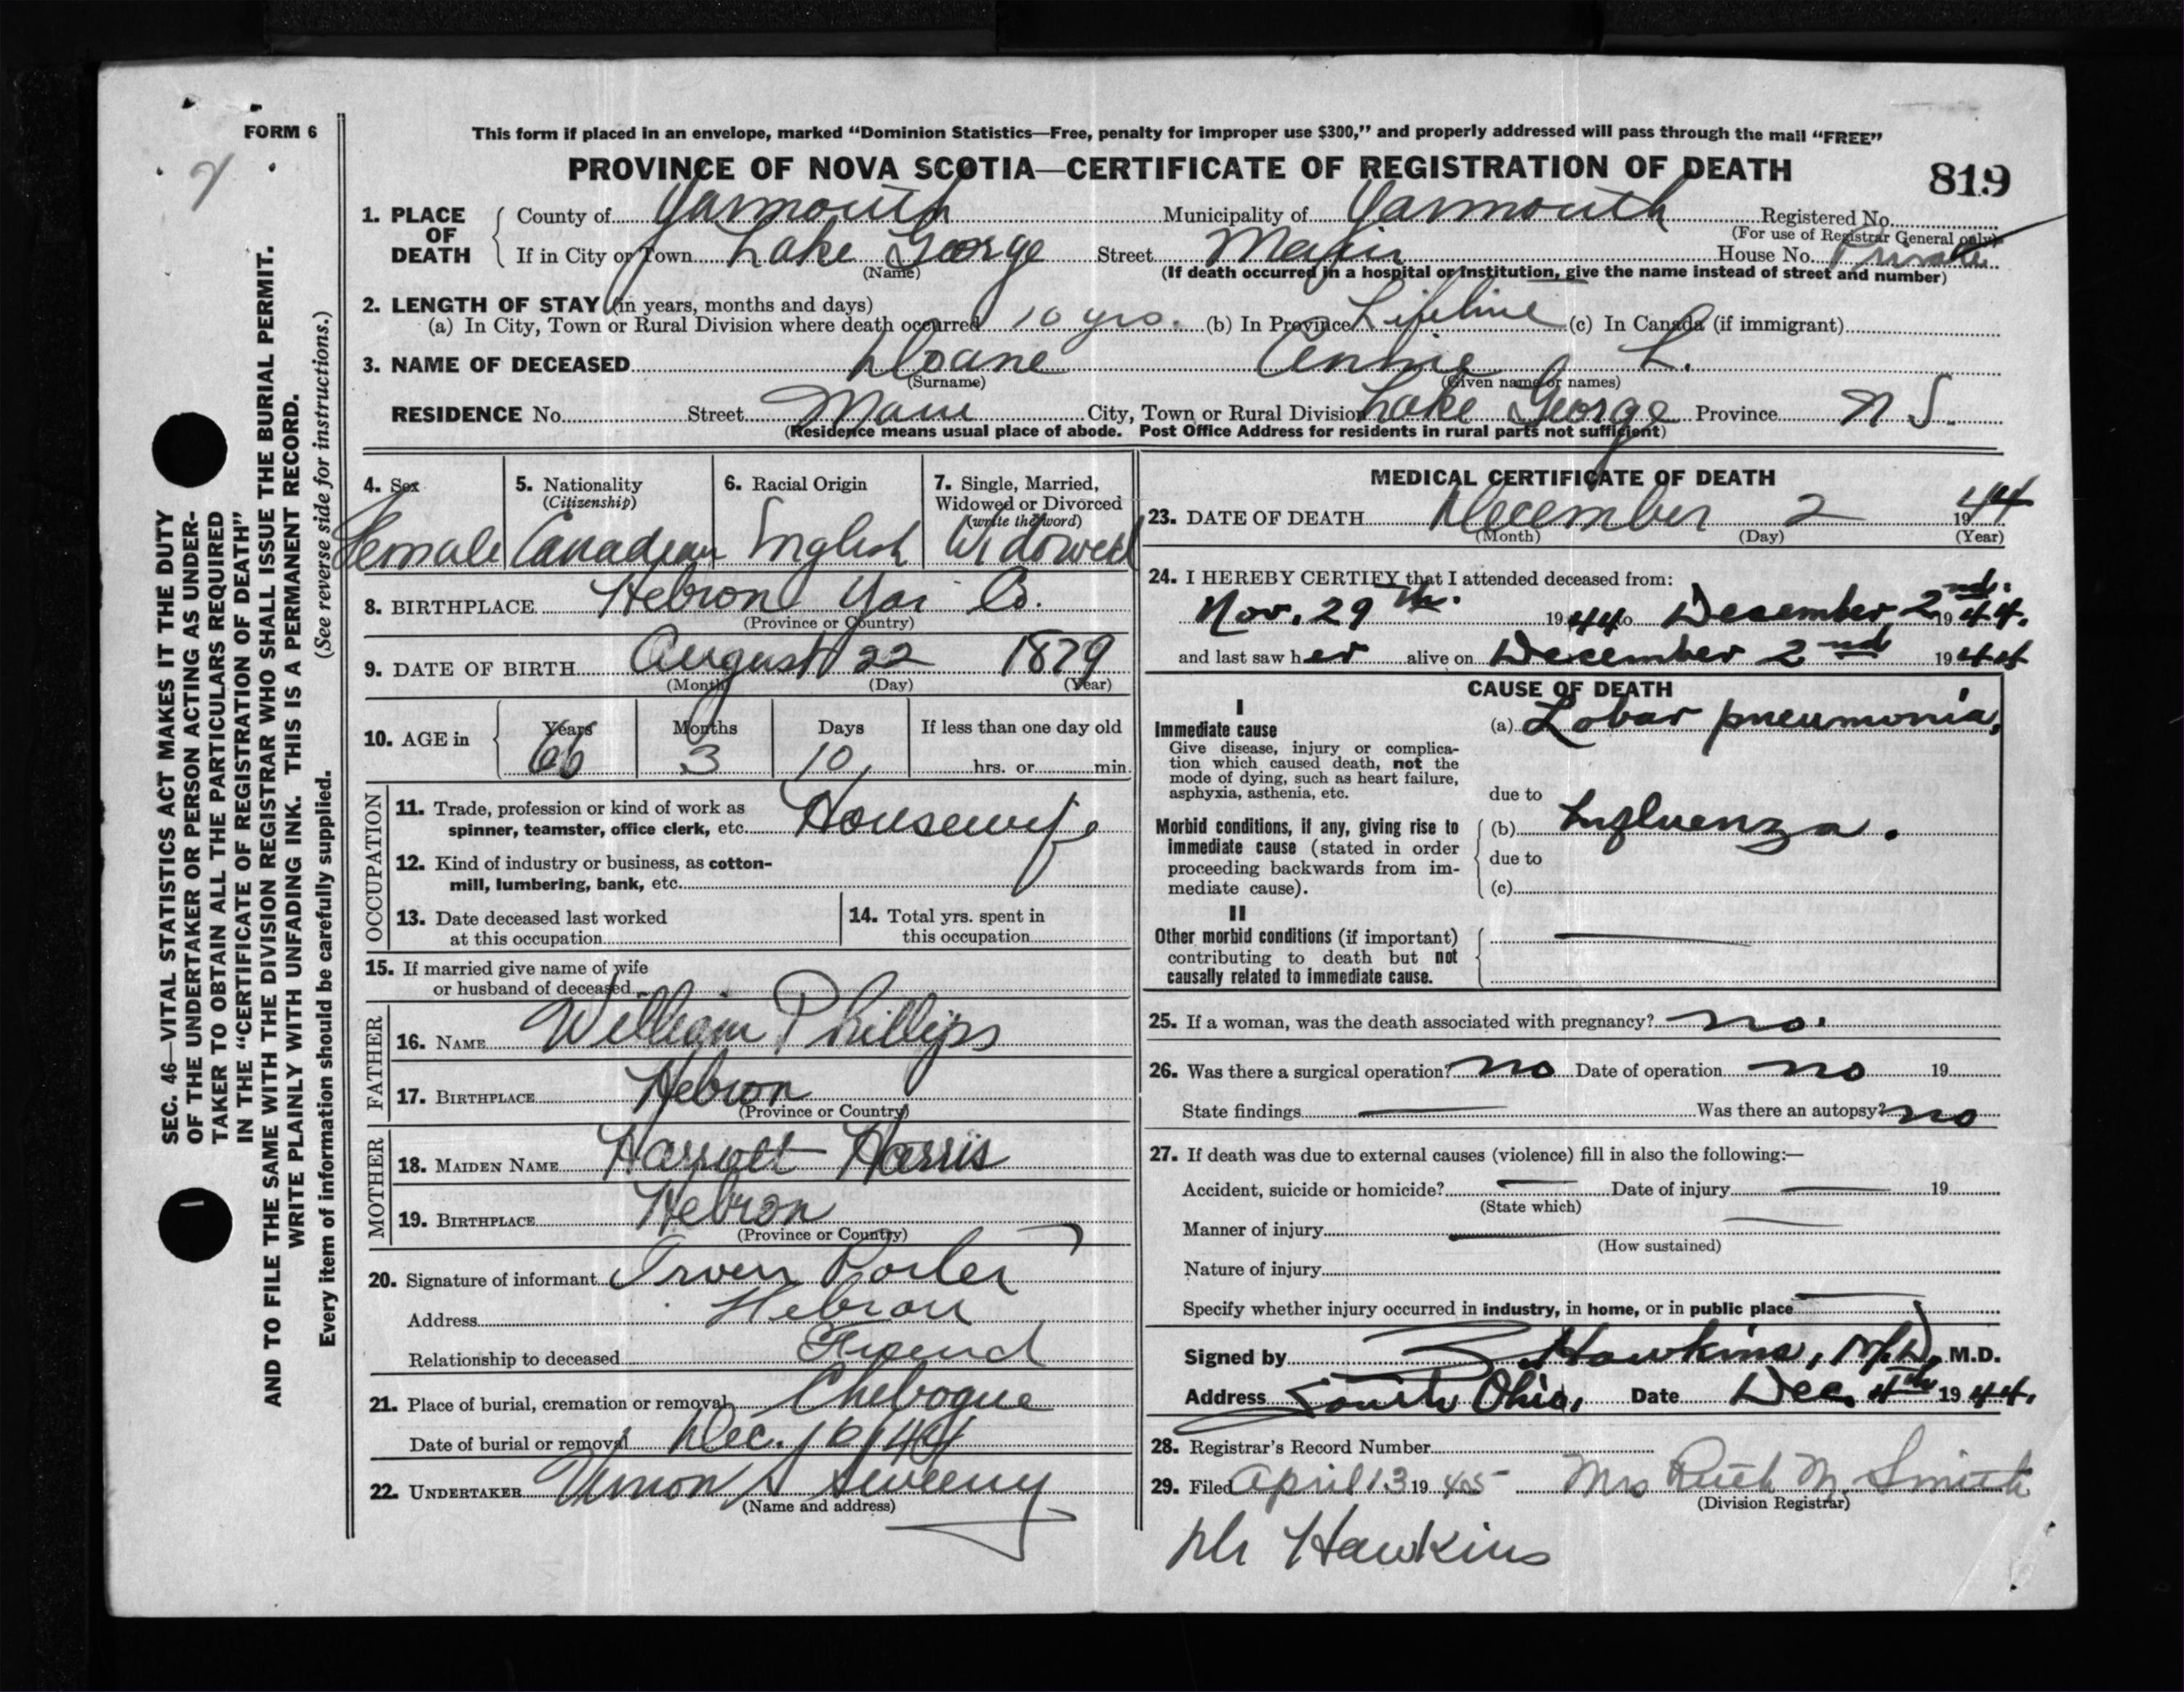 FORM 6
This form if placed in an envelope, marked “Dominion Statistics—Free, penalty for improper use $300,” and properly addressed will pass through the mail “FREE”
PROVINCE OF NOVA SCOTIA—CERTIFICATE OF REGISTRATION OF DEATH
819
1. PLACE OF DEATH
County of Yarmouth Municipality of Yarmouth Registered No.
(For use of Registrar General only)
If in City or Town Lake George Street Main House No. Private
(Name) (If death occurred in a hospital or institution, give the name instead of street and number)
2. LENGTH OF STAY (in years, months and days)
(a) In City, Town or Rural Division where death occurred 10 yrs. (b) In Province Lifetime (c) In Canada (if immigrant)
3. NAME OF DECEASED Doane Annie L.
(Surname) (Given name or names)
RESIDENCE No. Street Main City, Town or Rural Division Lake George Province N S.
(Residence means usual place of abode. Post Office Address for residents in rural parts not sufficient)
4. Sex
Female
5. Nationality
(Citizenship)
Canadian
6. Racial Origin
English
7. Single, Married,
Widowed or Divorced
(write the word)
Widowed
8. BIRTHPLACE Hebron Yar Co.
(Province or Country)
9. DATE OF BIRTH August 22 1879
(Month) (Day) (Year)
10. AGE in
Years Months Days If less than one day old
66 3 10 hrs. or min.
OCCUPATION
11. Trade, profession or kind of work as
spinner, teamster, office clerk, etc. Housewife
12. Kind of industry or business, as cotton-
mill, lumbering, bank, etc.
13. Date deceased last worked
at this occupation
14. Total yrs. spent in
this occupation
15. If married give name of wife
or husband of deceased
FATHER
16. NAME William Phillips
17. BIRTHPLACE Hebron
(Province or Country)
MOTHER
18. MAIDEN NAME Harriett Harris
19. BIRTHPLACE Hebron
(Province or Country)
20. Signature of informant Irven Porter
Address Hebron
Relationship to deceased Friend
21. Place of burial, cremation or removal Chebogue
Date of burial or removal Dec.
22. UNDERTAKER Vernon S Sweeny
(Name and address)
MEDICAL CERTIFICATE OF DEATH
23. DATE OF DEATH December 2 1944
(Month) (Day) (Year)
24. I HEREBY CERTIFY that I attended deceased from:
Nov. 29th. 1944 to December 2nd. 1944.
and last saw her alive on December 2nd 1944
CAUSE OF DEATH
I
Immediate cause
Give disease, injury or complica-
tion which caused death, not the
mode of dying, such as heart failure,
asphyxia, asthenia, etc.
(a) Lobar pneumonia,
due to
Morbid conditions, if any, giving rise to
immediate cause (stated in order
proceeding backwards from im-
mediate cause).
(b) Influenza.
due to
(c)
II
Other morbid conditions (if important)
contributing to death but not
causally related to immediate cause.
25. If a woman, was the death associated with pregnancy? no.
26. Was there a surgical operation? no Date of operation no 19
State findings Was there an autopsy? no
27. If death was due to external causes (violence) fill in also the following:—
Accident, suicide or homicide? Date of injury 19
(State which)
Manner of injury
(How sustained)
Nature of injury
Specify whether injury occurred in industry, in home, or in public place
Signed by Hawkins, M.D, M.D.
Address South Ohio, Date Dec. 4th 1944.
28. Registrar's Record Number
29. Filed April 13 1945 Mrs Ruth M. Smith
(Division Registrar)
Dr Hawkins
SEC. 46—VITAL STATISTICS ACT MAKES IT THE DUTY
OF THE UNDERTAKER OR PERSON ACTING AS UNDER-
TAKER TO OBTAIN ALL THE PARTICULARS REQUIRED
IN THE “CERTIFICATE OF REGISTRATION OF DEATH”
AND TO FILE THE SAME WITH THE DIVISION REGISTRAR WHO SHALL ISSUE THE BURIAL PERMIT.
WRITE PLAINLY WITH UNFADING INK. THIS IS A PERMANENT RECORD.
Every item of information should be carefully supplied. (See reverse side for instructions.)